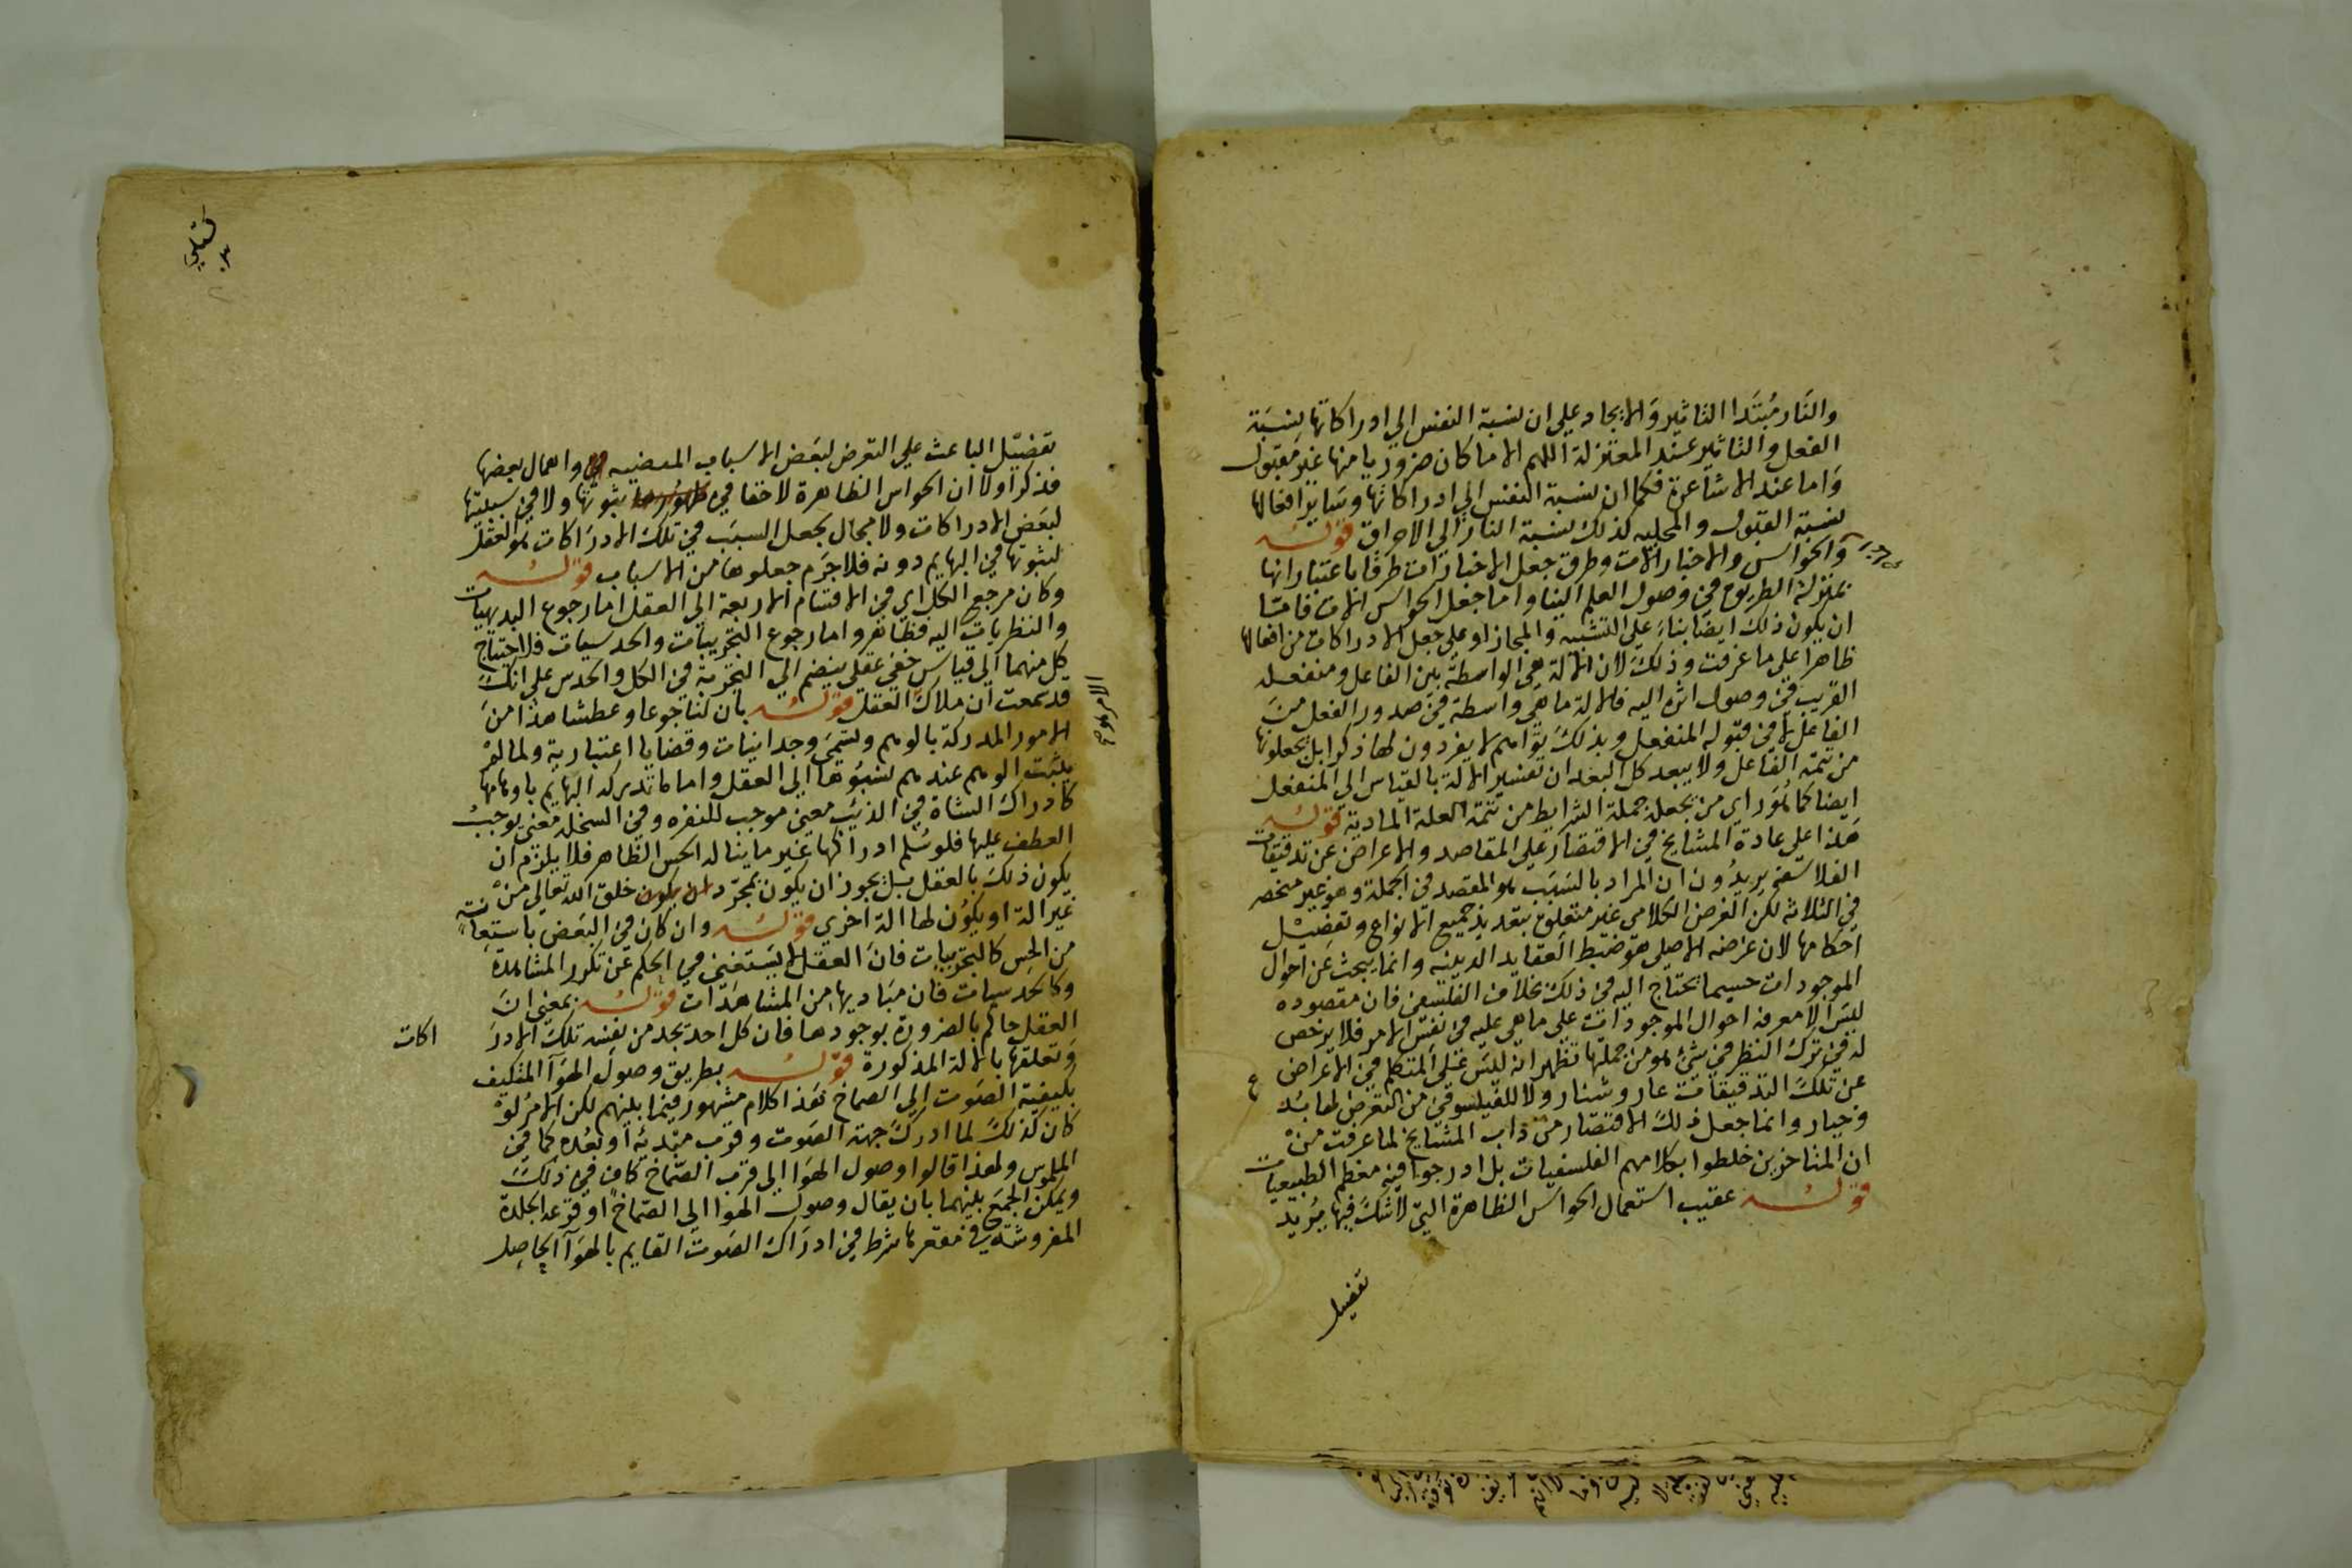 والنار مبتدا التاثير والايجاد علي ان نسبة النفس الي ادراكاتها بنسبة
الفعل والتاثير عند المعتزلة اللهم الا ما كان ضروريا منها غير مقبول
واما عند الاشاعرة فكما ان نسبة النفس الي ادراكاتها وساير افعالها
نسبة القبول والمحليه كذلك نسبة النار الي الاحراق قوله
والحواس والاخبار الات وطرق جعل الاخبارات طرقا باعتبار انها
بمنزلة الطريق في وصول العلم الينا واما جعل الحواس الات فاما
ان يكون ذلك ايضا بناء علي التشبيه والمجاز او علي جعل الادراكات من افعالها
ظاهرا علي ما عرفت وذلك لان الالة هي الواسطة بين الفاعل ومنفعله
القريب في وصول اثره اليه فالالة ما هي واسطة في صدور الفعل من
الفاعل لا في قبوله المنفعل وبذلك تراهم لا يفردون لها ذكرا بل يجعلونها
من تتمة الفاعل ولا يبعد كل البعد ان تفسير الالة بالقياس الي المنفعل
ايضا كما هو راي من يجعل جملة الشرايط من تتمة العلة المادية قوله
هذا علي عادة المشايخ في الاقتصار علي المقاصد والاعراض عن تدقيقات
الفلاسفة يريدون ان المراد بالسبب هو المقصد في الجملة وهو غير منحصر
في الثلاثة لكن الغرض الكلامي غير متعلق بتعديد جميع الانواع وتفضيل
احكامها لان غرضه الاصلي هو ضبط العقايد الدينيه وانما يبحث عن احوال
الموجودات حسبما يحتاج اليه في ذلك بخلاف الفلسفي فان مقصوده
ليس الا معرفة احوال الموجودات علي ما هي عليه في نفس الامر فلا يرخص
له في ترك النظر في شئ هو من جملتها تظهر انه ليس علي المتكلم في الاعراض
عن تلك التدقيقات عار وشنار ولا للفيلسوفي من التعرض لها بد
وخيار وانما جعل ذلك الاقتصار من داب المشايخ لما عرفت من
ان المتاخرين خلطوا بكلامهم الفلسفيات بل ادرجوا فيه معظم الطبيعيات
قوله عقيب استعمال الحواس الظاهرة التي لا شك فيها يريد
تفضيل
تفضيل الباعث علي التعرض لبعض الاسباب المفضيه واهمال بعضها
فذكر اولا ان الحواس الظاهرة لا خفا في ثبوتها ولا في سببيتها
لبعض الادراكات ولا مجال بجعل السبب في تلك الادراكات هو العقل
لثبوتها في البهايم دونه فلا جرم جعلوها من الاسباب قوله
وكان مرجع الكل اي في الاقسام الاربعة الي العقل اما رجوع البديهيات
والنظريات اليه فظاهر واما رجوع التجريبات والحدسيات فلاحتياج
كل منهما الي قياس خفي عقلي ينضم الي التجربة في الكل والحدس علي انك
قد سمعت ان ملاك العقل قوله بان لنا جوعا وعطشا هذا من
الامور المدركة بالوهم وتسمي وجدانيات وقضايا اعتبارية ولما لم
يثبت الوهم عندهم نسبوها الي العقل واما ما تدركه البهايم باوهامها
كادراك الشاة في الذئب معني موجب للنفره وفي السخلة معني يوجب
العطف عليها فلو سلم ادراكها غير ما يناله الحس الظاهر فلا يلزم ان
يكون ذلك بالعقل بل يجوز ان يكون بمجرد خلق الله تعالي من
غير الة او يكون لها الة اخري قوله وان كان في البعض باستعانة
من الحس كالتجريبات فان العقل لا يستغني في الحكم عن تكرر المشاهدة
وكالحدسيات فان مباديها من المشاهدات قوله بمعني ان
العقل حاكم بالضرورة بوجودها فان كل احد يجد من نفسه تلك الادر اكات
وتعلقها بالالة المذكورة قوله بطريق وصول الهوا المتكيف
بكيفية الصوت الي الصماخ هذا كلام مشهور فيما بينهم لكن الامر لو
كان كذلك لما ادرك جهة الصوت وقرب مبدئه او بعده كما في
الملموس ولهذا قالوا وصول الهوا الي قرب الصماخ كاف في ذلك
ويمكن الجمع بينهما بان يقال وصول الهوا الي الصماخ او قرعه الجلدة
المفروشة في مقعرها شرط في ادراك الصوت القايم بالهوا الحاصل